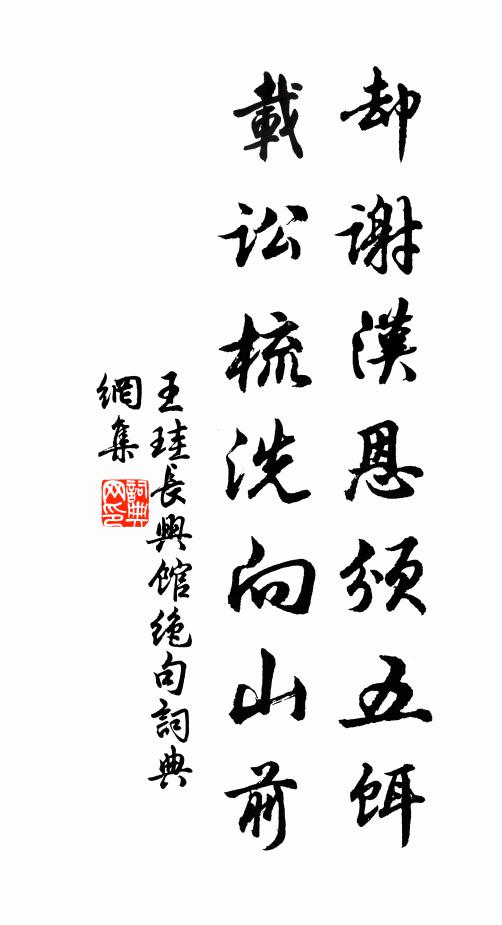 却謝漢恩頒五餌
載訟梳洗向山前
王珪長興館绝句詞典
網集
詞典網印